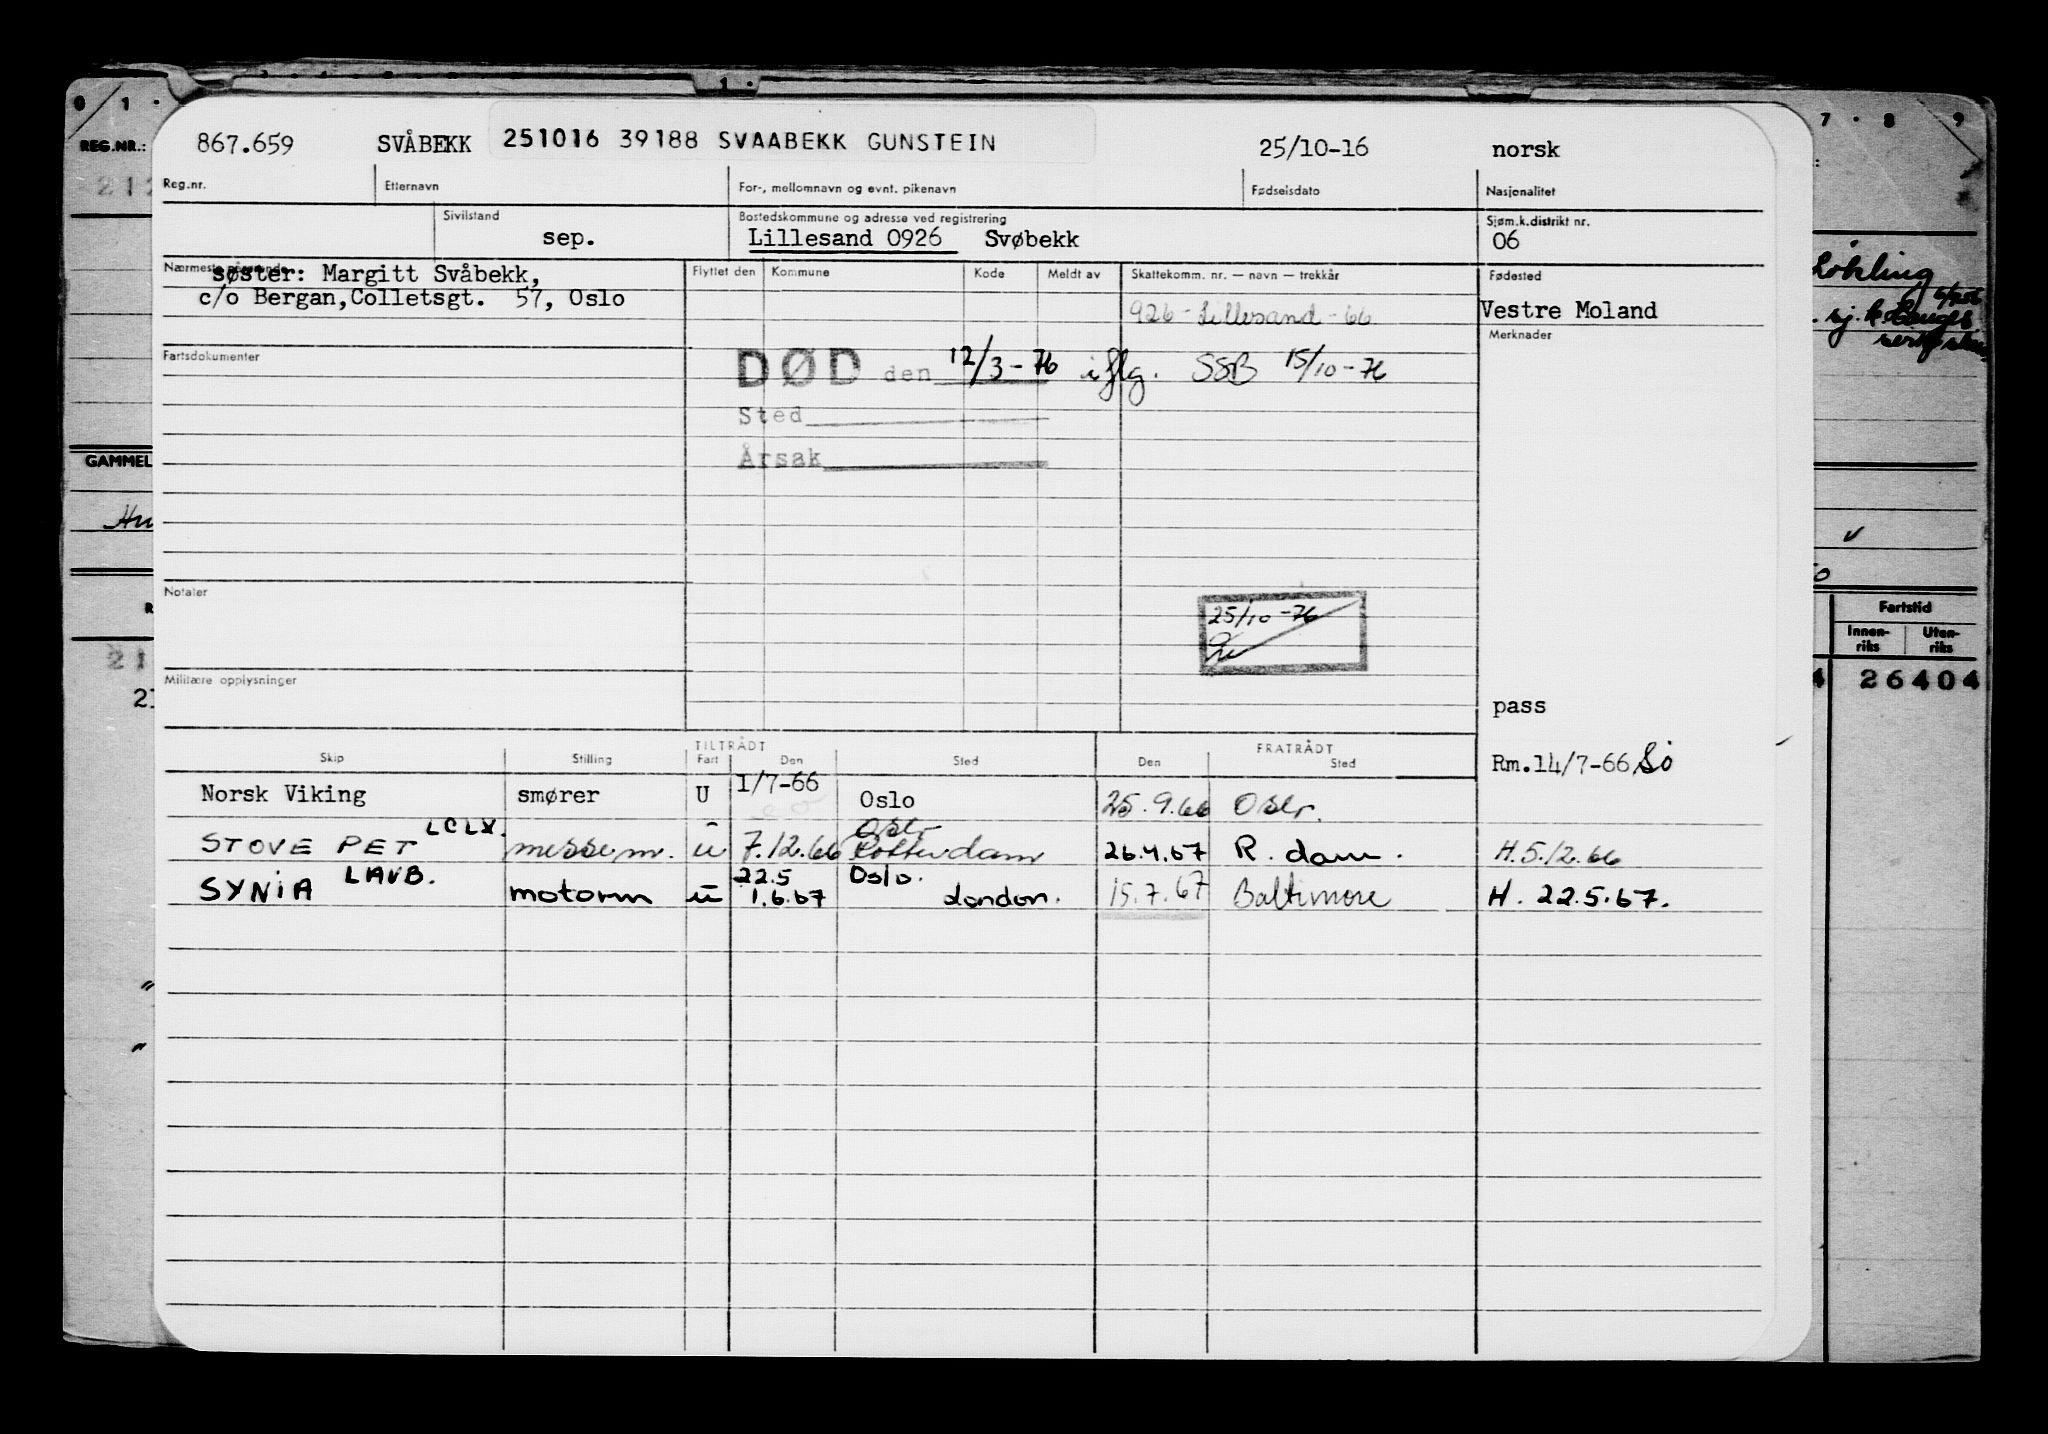 0 1 7 8 9
REG.NR.:
867.659 SVÅBEKK 251016 39188 SVAABEKK GUNSTEIN 25/10-16 norsk
Reg.nr. Etternavn For-, mellomnavn og evnt. pikenavn Fødselsdato Nasjonalitet
Sivilstand Bostedskommune og adresse ved registrering Sjøm.k.distrikt nr.
sep. Lillesand 0926 Svøbekk 06
Nærmeste pårørende Flyttet den Kommune Kode Meldt av Skattekomm. nr. — navn — trekkår Fødested
søster: Margitt Svåbekk,
c/o Bergan, Colletsgt. 57, Oslo
926 - Lillesand - 66 Vestre Moland
Merknader
Fartsdokumenter
DØD den 12/3-76 iflg. SSB 15/10-76
Sted
Årsak
GAMMEL
Notater
25/10-76
Fartstid
Innen-riks Uten-riks
26404
Militære opplysninger
pass
TILTRÅDT FRATRÅDT
Skip Stilling Fart Den Sted Den Sted
Rm.14/7-66 Sö
Norsk Viking smører U 1/7-66 Oslo 25.9.66 Oslo.
LCLX. Oslo
STOVE PET messem. u 7.12.66 Rotterdam 26.4.67 R.dam. H.5.12.66
LAVB. 22.5 Oslo.
SYNIA motorm u 1.6.67 London. 15.7.67 Baltimore H. 22.5.67.